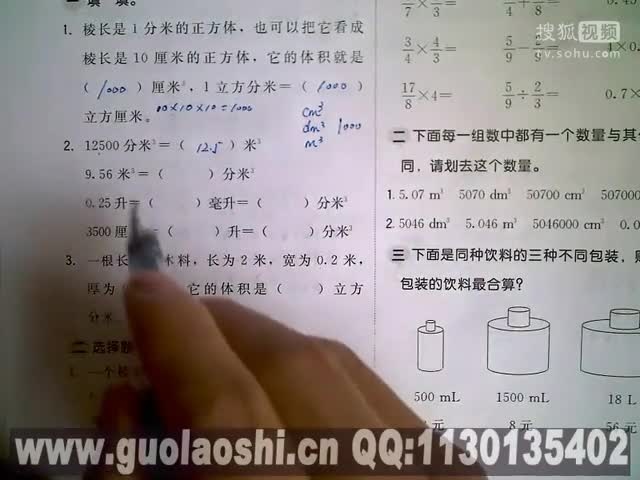 一 填一填。
1. 棱长是1分米的正方体,也可以把它看成
棱长是10厘米的正方体,它的体积就是
( 1000 )厘米³,1立方分米=( 1000 )
立方厘米。 10×10×10=1000
cm³
dm³ 1000
m³
2. 12500分米³=( 12.5 )米³
9.56米³=( )分米³
0.25升=( )毫升=( )分米³
3500厘 ( )升=( )分米³
3. 一根长 木料,长为2米,宽为0.2米,
厚为 它的体积是( )立方
分米
二 选择题
1. 一个棱
7/5 × 1/3
3/4 × 4/3 5/9 - 1 1×0
17/8 × 4= 5/9 ÷ 2/3 0.7×
二 下面每一组数中都有一个数量与其
同,请划去这个数量。
1. 5.07 m³ 5070 dm³ 50700 cm³ 507000
2. 5046 dm³ 5.046 m³ 5046000
三 下面是同种饮料的三种不同包装,
包装的饮料最合算?
500 mL 1500 mL 18 L
元 8元 56元
搜狐视频
tv.sohu.com
www.guolaoshi.cn QQ:1130135402